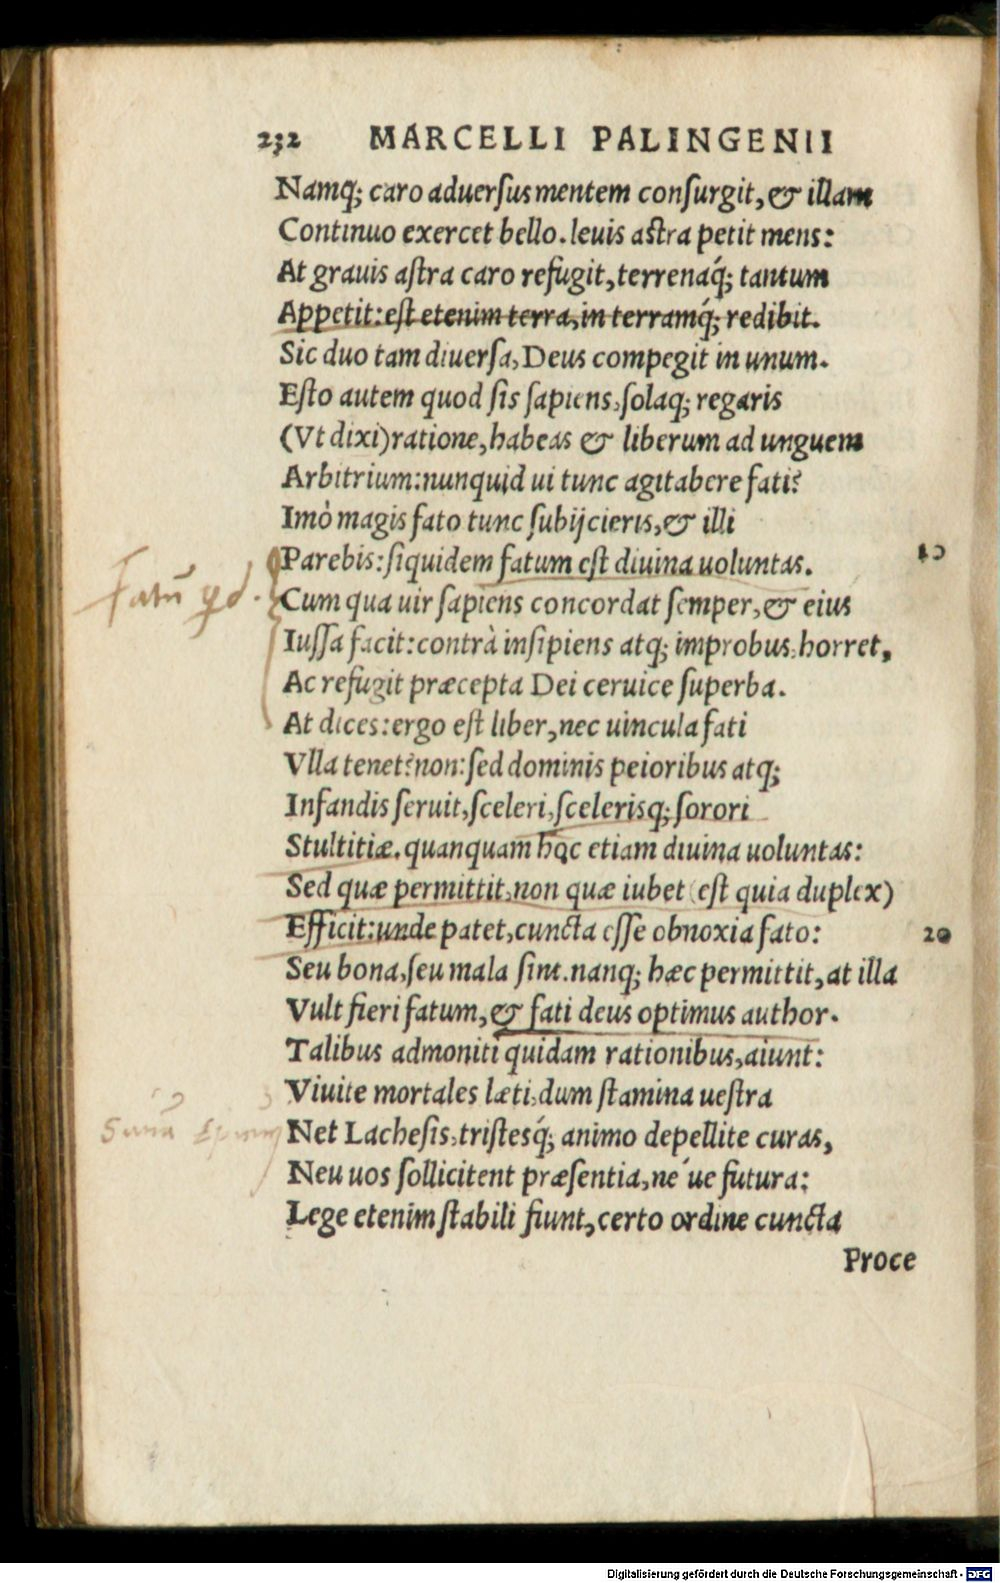 232 MARCELLI PALINGENII
Namq; caro aduerſus mentem conſurgit, & illam
Continuo exercet bello. leuis aſtra petit mens:
At grauis aſtra caro refugit, terrenaq́; tantum
Appetit: eſt etenim terra, in terramq́; redibit.
Sic duo tam diuerſa, Deus compegit in unum.
Eſto autem quod ſis ſapiens, ſolaq; regaris
(Vt dixi) ratione, habeas & liberum ad unguem
Arbitrium: nunquid ui tunc agitabere fati?
Imò magis fato tunc ſubijcieris, & illi
Parebis: ſiquidem fatum eſt diuina uoluntas. 10
Fatū qd.
Cum qua uir ſapiens concordat ſemper, & eius
Iuſſa facit: contrà inſipiens atq; improbus, horret,
Ac refugit præcepta Dei ceruice ſuperba.
At dices: ergo eſt liber, nec uincula fati
Vlla tenet? non: ſed dominis peioribus atq;
Infandis ſeruit, ſceleri, ſcelerisq; ſorori
Stultitiæ. quanquam hæc etiam diuina uoluntas:
Sed quæ permittit, non quæ iubet (eſt quia duplex)
Efficit: unde patet, cuncta eſſe obnoxia fato: 20
Seu bona, ſeu mala ſint. nanq; hæc permittit, at illa
Vult fieri fatum, & fati deus optimus author.
Talibus admoniti quidam rationibus, aiunt:
Viuite mortales læti, dum ſtamina ueſtra
Net Lacheſis, triſtesq́; animo depellite curas,
Neu uos ſollicitent præſentia, ne ue futura:
Lege etenim ſtabili fiunt, certo ordine cuncta
Proce
Digitalisierung gefördert durch die Deutsche Forschungsgemeinschaft - DFG